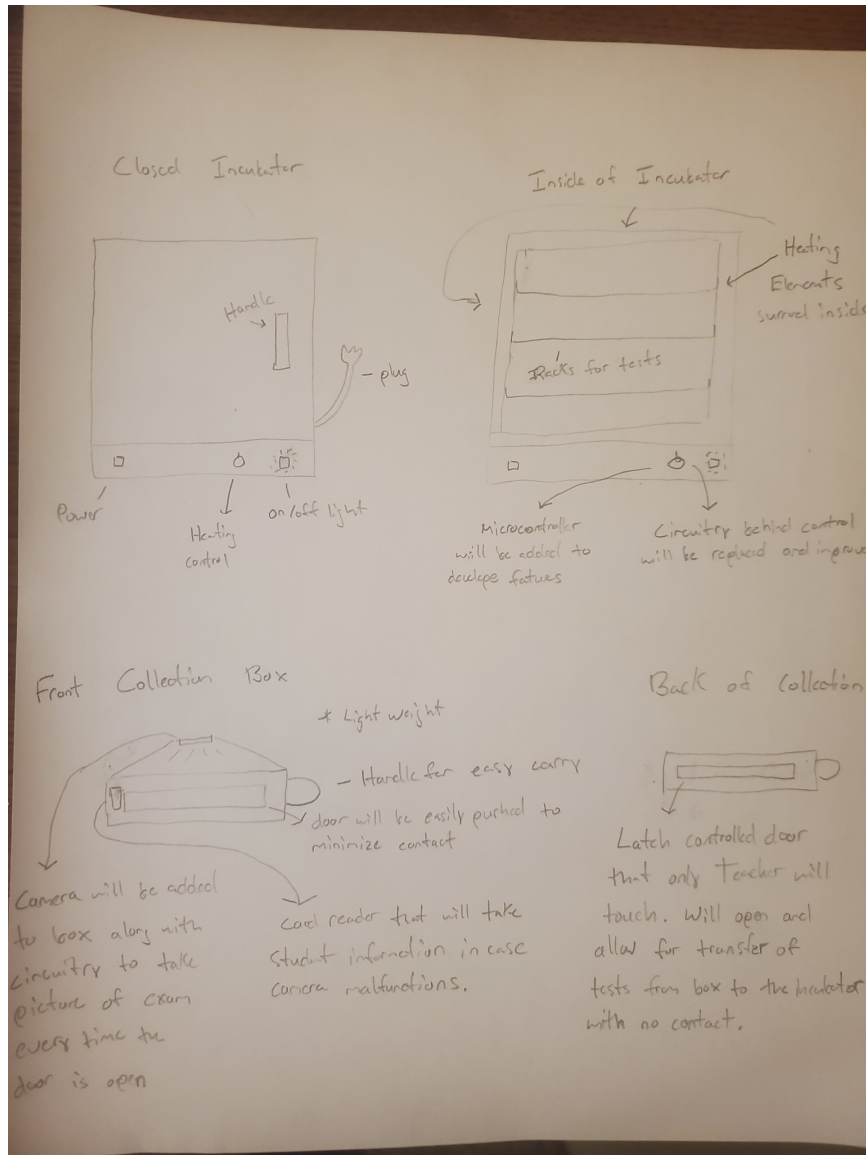 Closed Incubator
Handle
plug
Power
Heating
control
on/off light
Inside of Incubator
Heating
Elements
inside
Racks for tests
Microcontroller
will be added to
Circuitry behind control
will be replaced and improve
Front Collection Box
* Light weight
- Handle for easy carry
door will be easily pushed to
minimize contact
Camera will be added
to box along with
circuitry to take
picture of exam
every time the
door is open
Card reader that will take
Student information in case
camera malfunctions.
Back of Collection
Latch controlled door
that only Teacher will
touch. Will open and
allow for transfer of
tests from box to the Incubator
with no contact.